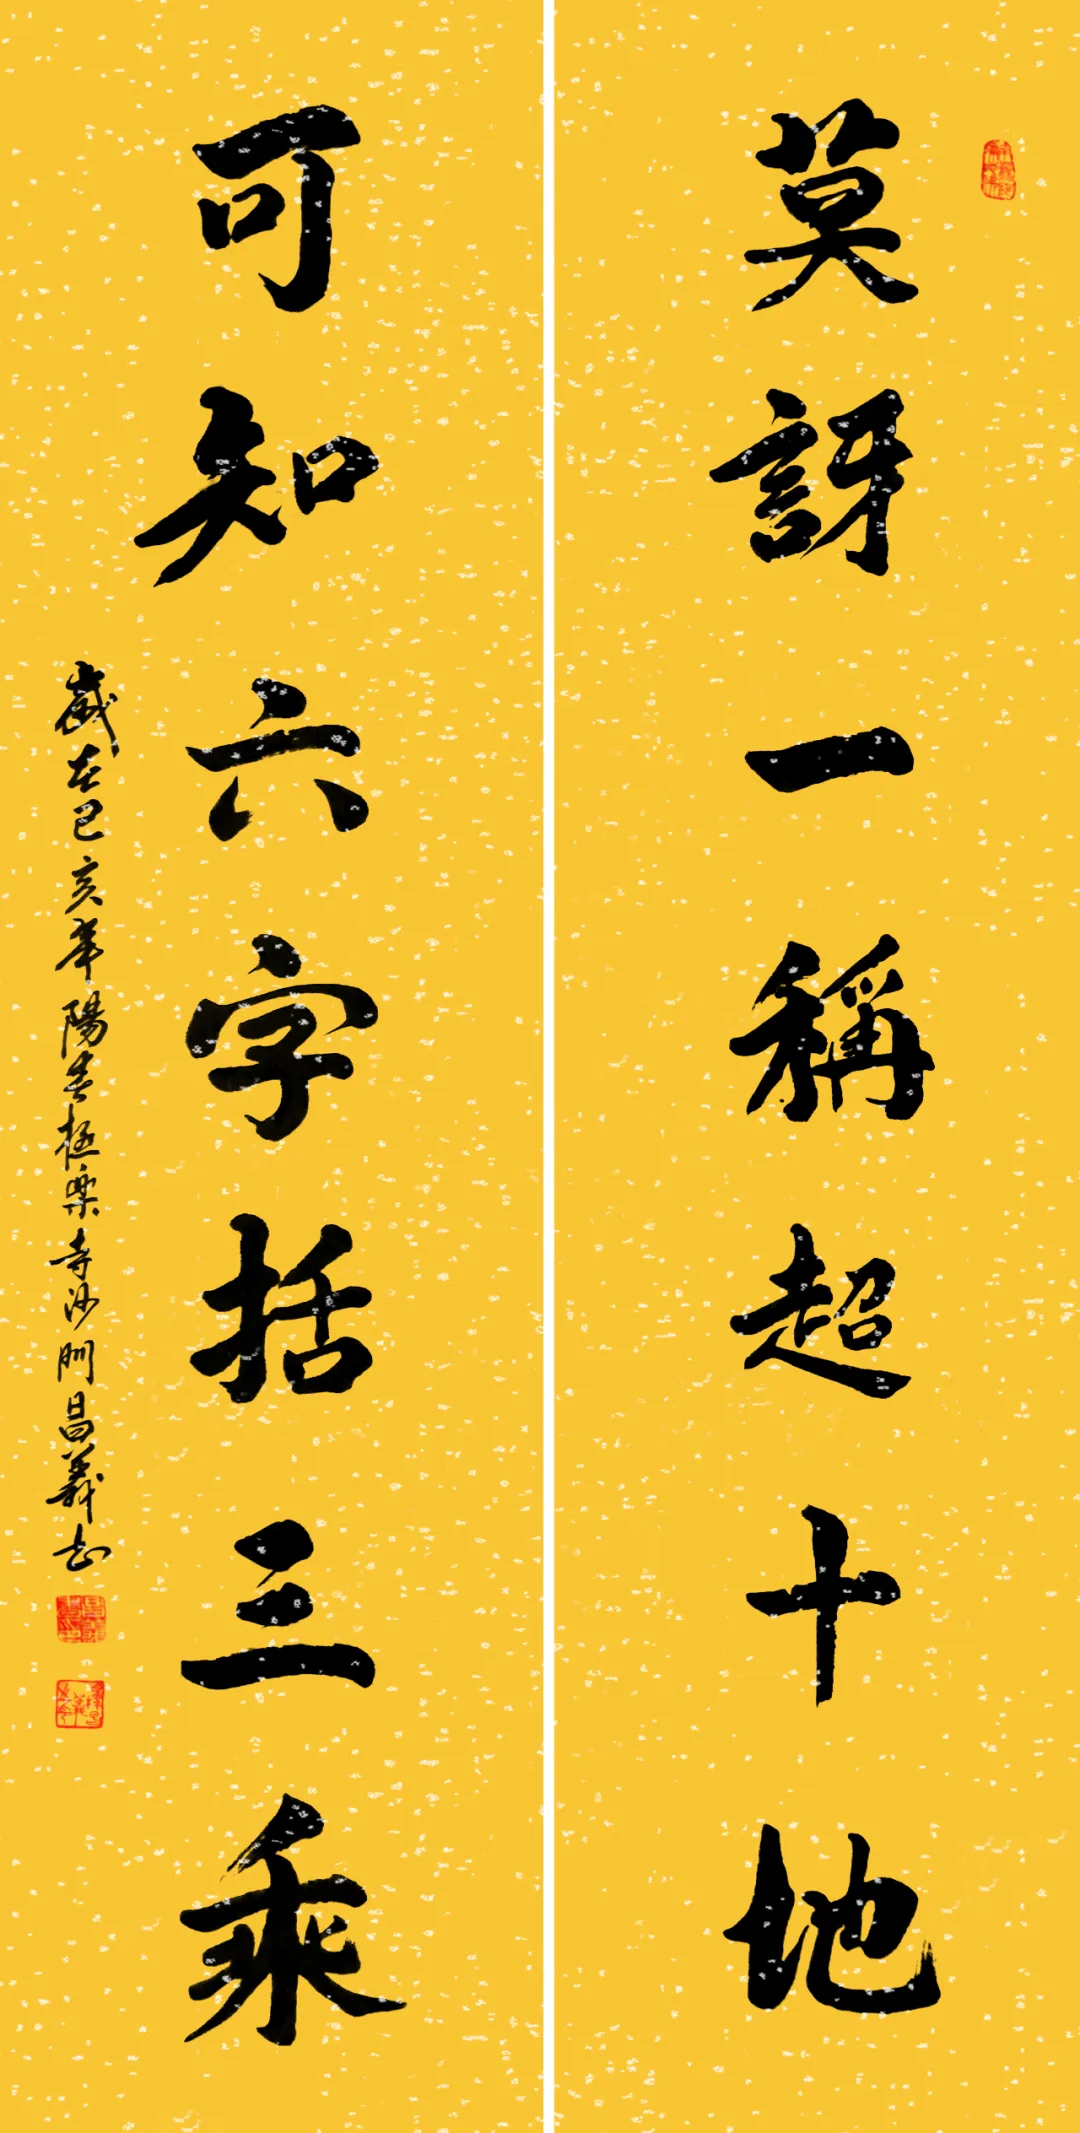 莫訝一稱超十地
可知六字括三乘
歲在己亥年陽春極樂寺沙門昌義書